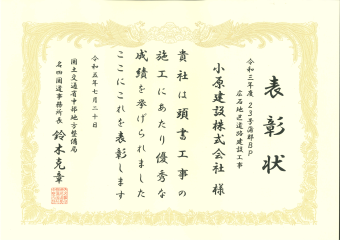 表彰状
令和三年度 23号蒲郡BP
広石地区道路建設工事
小原建設株式会社 様
貴社は頭書工事の
施工にあたり優秀な
成績を挙げられました
ここにこれを表彰します
令和五年七月二十日
国土交通省中部地方整備局
名四国道事務所長 鈴木克章